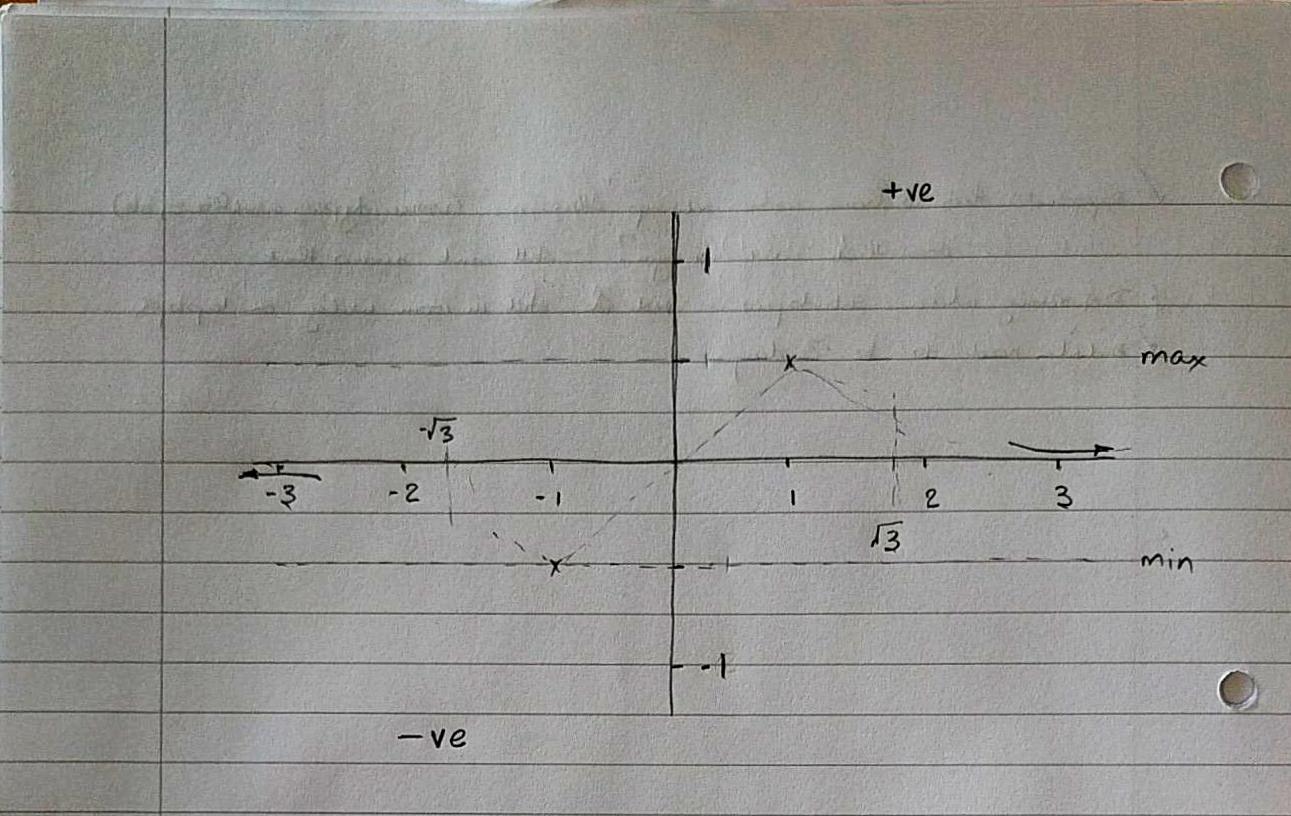 +ve
1
max
-√3
-3 -2 -1 1 2 3
√3
min
-1
-ve